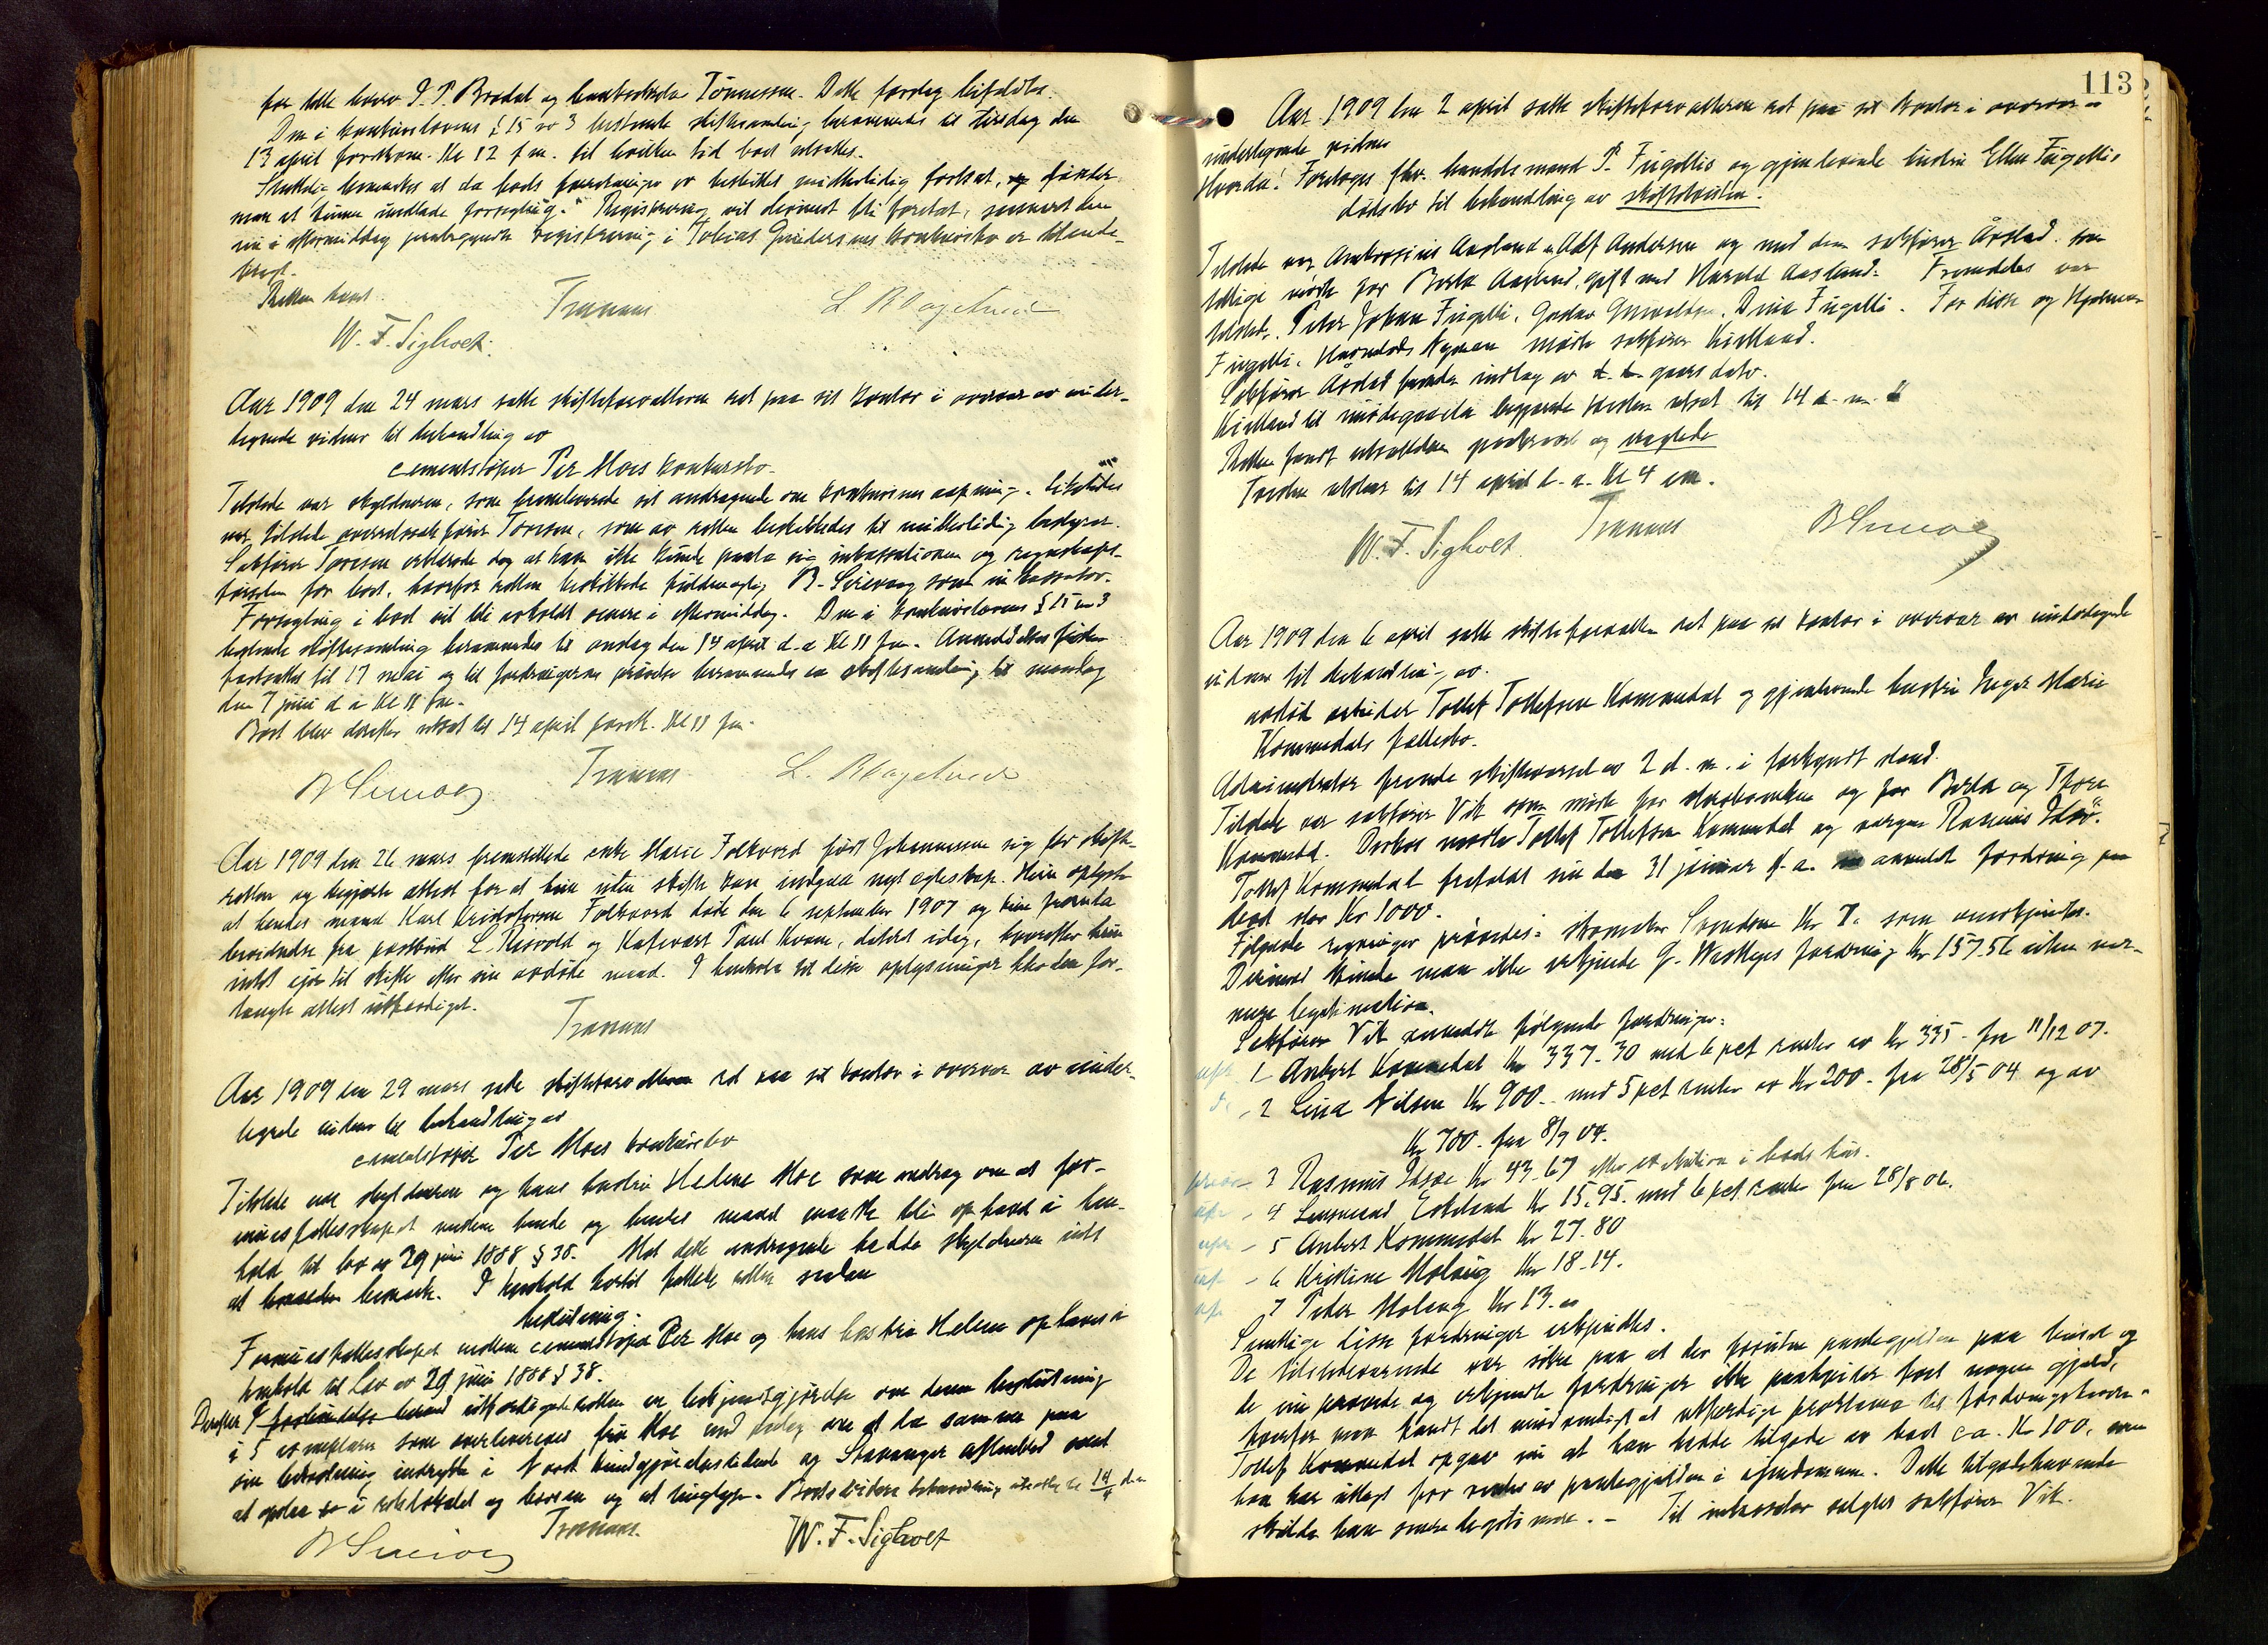 for dette hverv I. P. Brodal og kontorchef Tönnessen. Dette forslag bifaldtes.
Den i konkurslovens § 15 nr 3 bestemte skiftesamling berammedes til tirsdag den
13 april førstkom. Kl 12 f m. til hvilken tid boet utsattes.
bemerkes at da boets forretninger er besluttet midlertidig fortsat, finder
man at kunne undlade forsegling. Registrering vil derimot bli foretat, snarest den
nu i eftermiddag paabegyndte registrering i Tobias konkursbo er tilende-
bragt.
Retten hævet
W. F. Sigholt. Tranaas L. R Hagelund
Aar 1909 den 24 mars satte skifteforvalteren ret paa sit kontor i overvær av under-
tegnede vidner til behandling av
cementstøper Per Moes konkursbo.
Tilstede var skyldneren, som fremleverede sit andragende om konkursens aapning. Likeledes
var tilstede overretssakfører Toresen, som av retten beskikkedes til midlertidig bestyrer.
Sakfører Toresen erklærede dog at han ikke kunde paata sig inkassationen og regnskaps-
førselen for boet, hvorfor retten beskikkede fuldmægtig B. Sirevaag som inkassator.
Forsegling i boet vil bli avholdt senere i eftermiddag. Den i konkurslovens § 15 nr 3
bestemte skiftesamling berammedes til onsdag den 14 april d. a Kl 11 fm. Anmeldelsesfristen
fastsattes til 17 mai og til fordringernes prøvelse berammedes en skiftesamling til mandag
den 7 juni d a Kl 11 fm.
Boet blev derefter utsat til 14 april førstk. Kl 11 fm.
B Sirevaag Tranaas L. R Hagelund
Aar 1909 den 26 mars fremstillede enke Marie Folkvord født Johannessen sig for skifte-
retten og begjærte attest for at hun uten skifte kan indgaa nyt egteskap. Hun oplyste
at hendes mand Karl Kristoffersen Folkvord døde den 6 september 1907 og hun fremla
bevidnelse fra postbud L. Risvold og Kafevært Paul Kvam, dateret idag, hvorefter hun
intet ejer til skifte efter sin avdøde mand. I henhold til disse oplysninger blev den for-
langte attest utfærdiget.
Tranaas
Aar 1909 den 29 mars satte skifteforvalteren ret paa sit kontor i overvær av under-
tegnede vidner til behandling av
cementstøper Per Moes konkursbo
Tilstede var skyldneren og hans hustru Helene Moe som androg om at for-
muesfællesskapet mellem hende og hendes mand maatte bli ophævet i hen-
hold til lov av 29 juni 1888 § 38. Mot dette andragende hadde skyldneren intet
at bemerke. I henhold hertil fattede retten saadan
beslutning:
Formuesfællesskapet mellem cementstøper Per Moe og hans hustru Helene ophæves i
henhold til lov av 29 juni 1888 § 38.
Derefter utfærdigede retten en bekjendtgjørelse om denne beslutning
i 5 exemplarer som overleveredes fru Moe med paalæg om at la samme paa
sin bekostning indrykke i Norsk kundgjørelsestidende og Stavanger Aftenblad samt
at opslaa i retslokalet og børsen og at tinglyse. Boets videre behandling utsattes til 14/4 d. a
B Sirevaag Tranaas. W. F. Sigholt
113
Aar 1909 den 2 april satte skifteforvalteren ret paa sit kontor i overvær av
undertegnede vidner
Hvorda: Foretoges fhv. handelsmand P. Fugellis og gjenlevende hustru Ellen Fugellis
dødsbo til behandling av skiftetvisten.
Tilstede var Ambrosius Aasland, Adolf Andersen og med dem sakfører Årstad som
tillige møtte for Berta Aasland, gift med Harald Aasland. Fremdeles var
tilstede Peter Johan Fugelli, Gustav , Dina Fugelli. For disse og Hjalmar
Fugelli, Nyman møtte sakfører Kielland.
Sakfører Årstad fremla indlæg av gaars dato.
Kielland til møtegaaelse begjærede tvisten utsat til 14 d. m.
Retten fandt utsættelsen paakrævet og avsagde
Tvisten utstaar til 14 april d. a. Kl 4 em.
W. F. Sigholt. Tranaas B Sirevaag
Aar 1909 den 6 april satte skifteforvalteren ret paa sit kontor i overvær av undertegnede
vidner til behandling av.
avdøde arbeider Tollef Tollefsen Kommedal og gjenlevende hustru Inger Marie
Kommedals fællesbo.
Administrator fremla skiftevarsel av 2 d. m. i forkyndt stand.
Tilstede var sakfører Vik som møtte for og for Berta og Thora
Kommedal. Derhos møtte Tollef Tollefsen Kommedal og værgen Rasmus Idsø.
Tollef Kommedal frafaldt sin den 31 januar d. a. anmeldt fordring paa
boet stor Kr 1000.
Følgende regninger prøvedes: skomaker Svendsen Kr 7. som anerkjendtes.
Derimot kunde man ikke erkjende G. fordring Kr 157.56 uten nær-
mere legitimation.
Sakfører Vik anmeldte følgende fordringer:
1 Anbert Kommedal Kr 337-30 med 6 pct renter av Kr 335 fra 11/12 07.
2 Lina Nilsen Kr 900 med 5 pct renter av Kr 200 fra 28/5 04 og av
Kr 700 fra 8/9 04.
3 Rasmus Idsøe Kr 43.67 efter exekution i boets hus.
4 Lensmand Eskeland Kr 15.95 med 6 pct renter fra 28/8 06.
5 Anbert Kommedal Kr 27.80
6 Kristine Molaug Kr 18.14.
7 Peder Molaug Kr 13.
Samtlige disse fordringer erkjendtes.
De tilstedeværende var sikre paa at der foruten pantegjælden paa huset og
de nu prøvede og erkjendte fordringer ikke paahviler boet nogen gjæld,
hvorfor man fandt det unødvendigt at utfærdige proklama til fordringshavere.
Tollef Kommedal opgav nu at han hadde tilgode av boet ca. Kr 100, som
han har utlagt for renter av pantegjælden i ejendommen. Dette tilgodehavende
skulde han senere legitimere. - Til inkassator valgtes sakfører Vik.